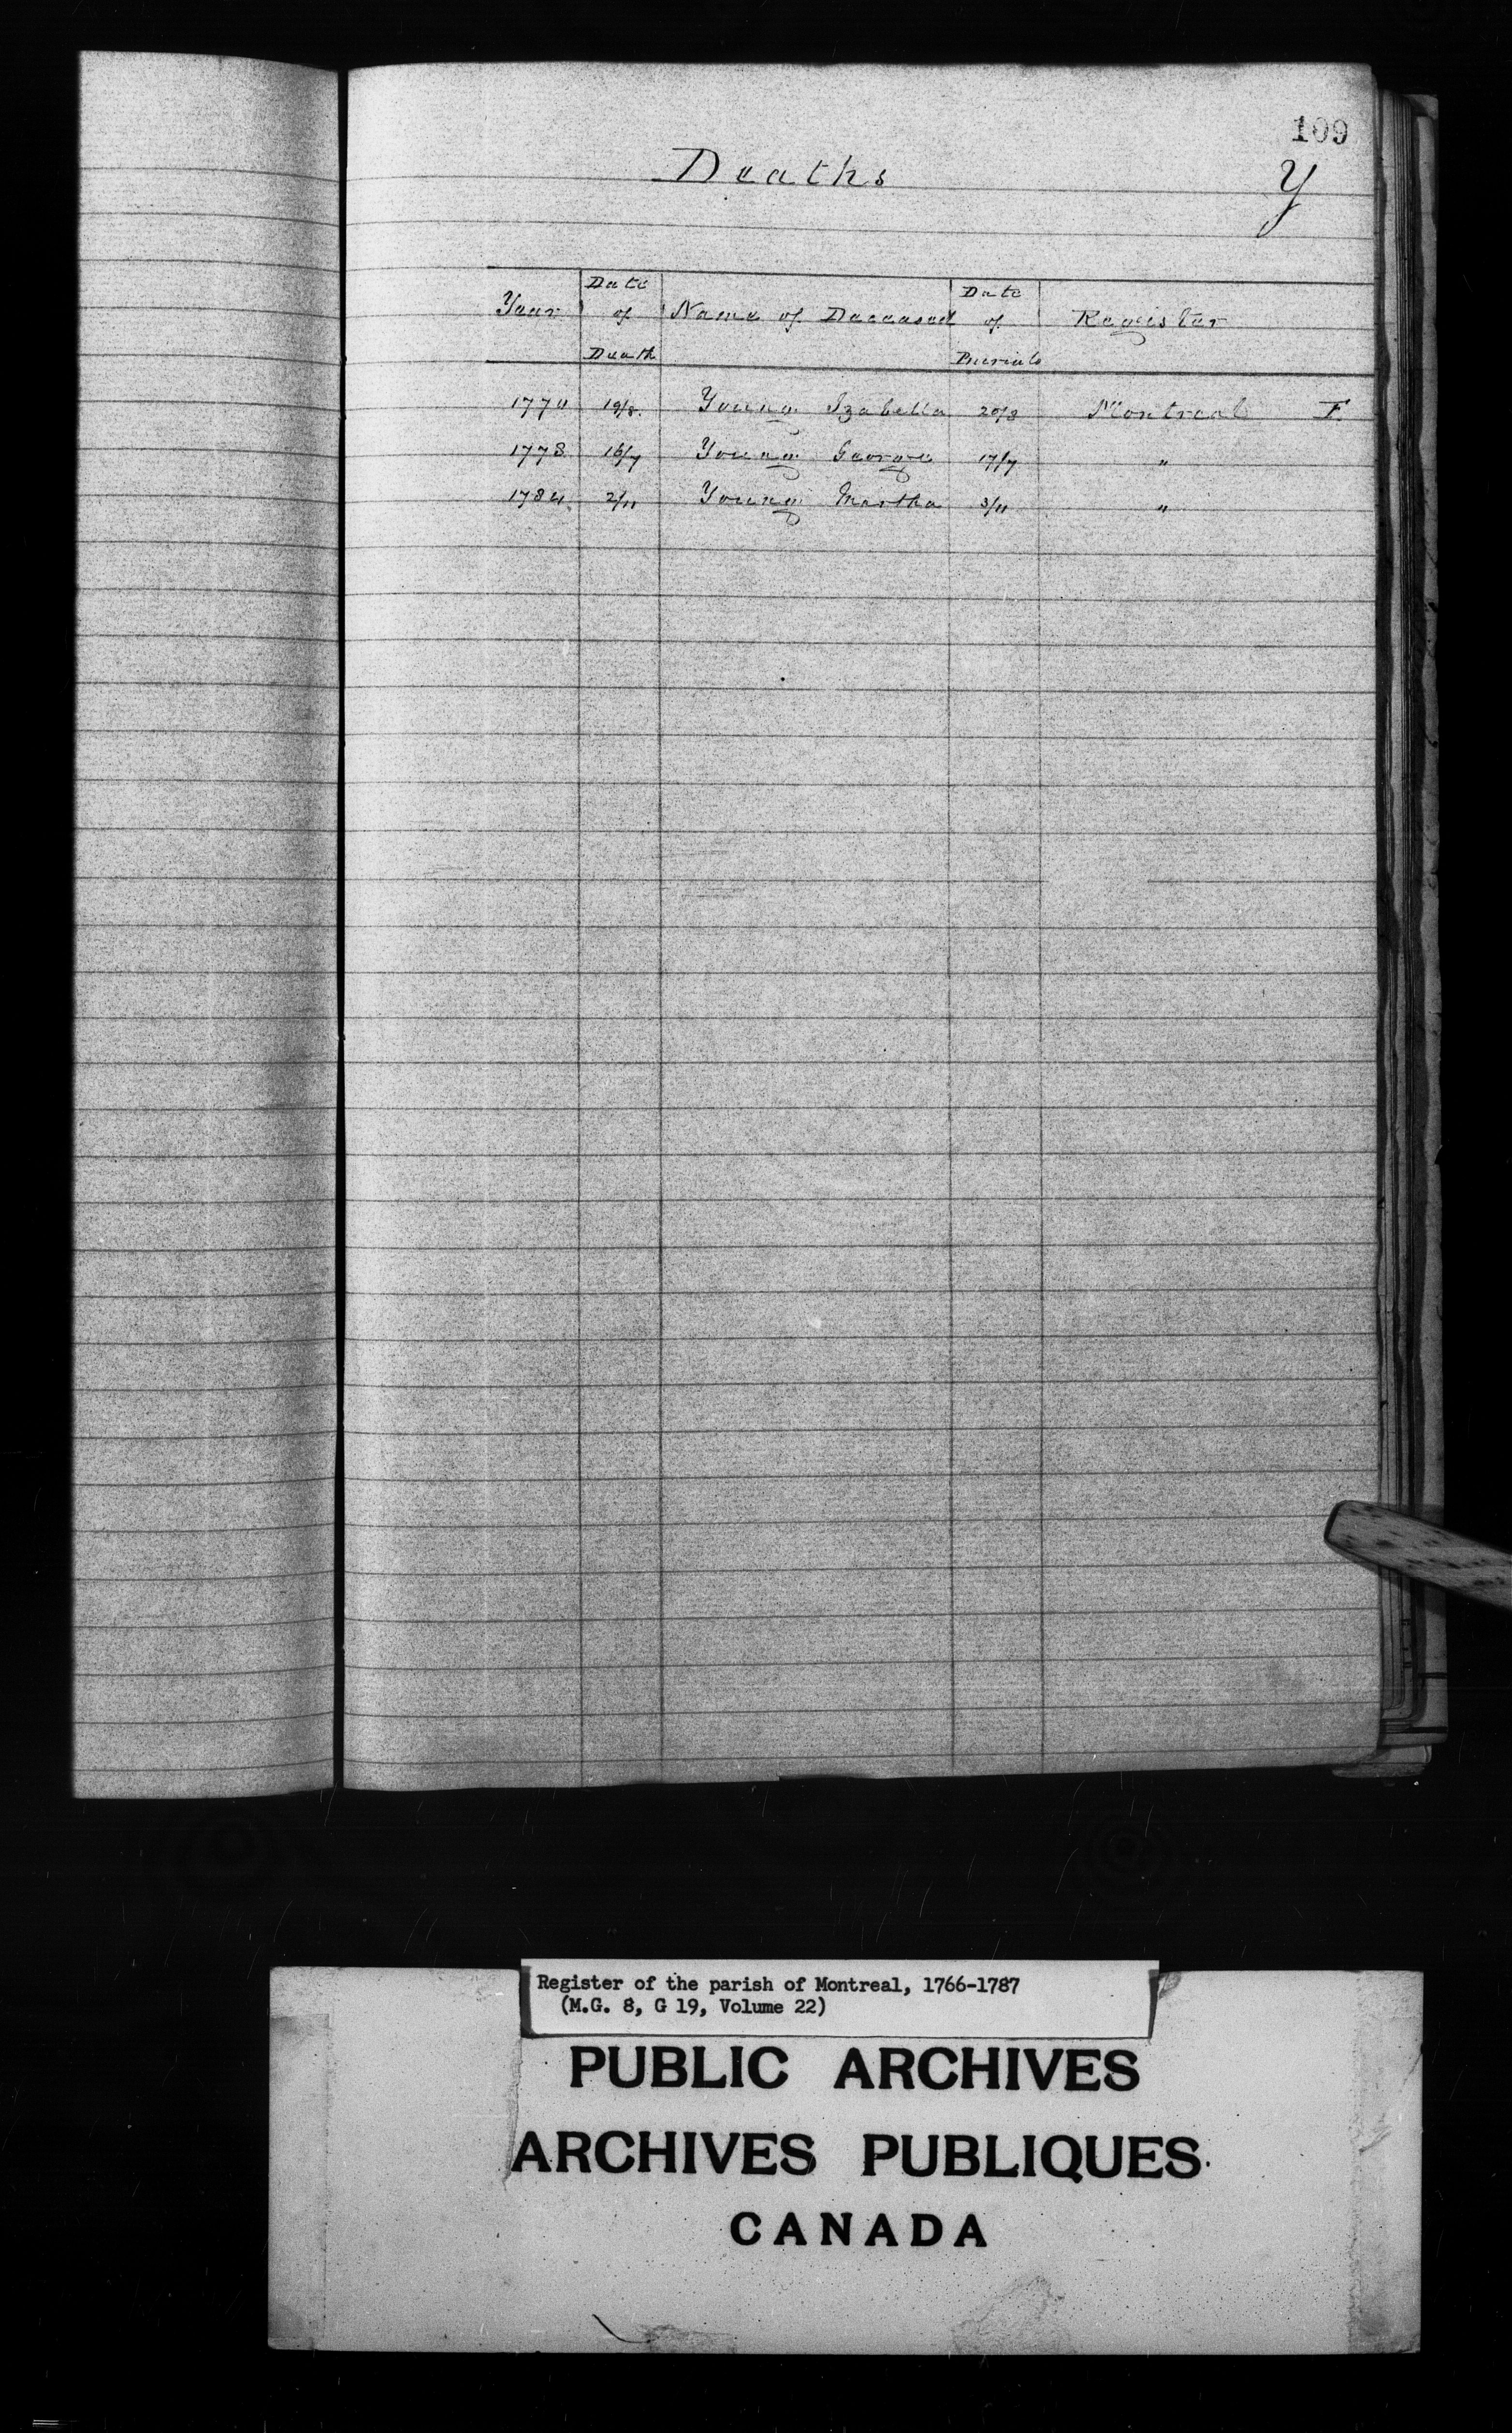 109
Deaths
Y
Year Date of Death Name of Deceased Date of Burials Register
1770 19/8. Young Izabella 20/8 Montreal F.
1778 16/7 Young George 17/7 "
1784 2/11 Young Martha 3/11 "
Register of the parish of Montreal, 1766-1787
(M.G. 8, G 19, Volume 22)
PUBLIC ARCHIVES
ARCHIVES PUBLIQUES
CANADA